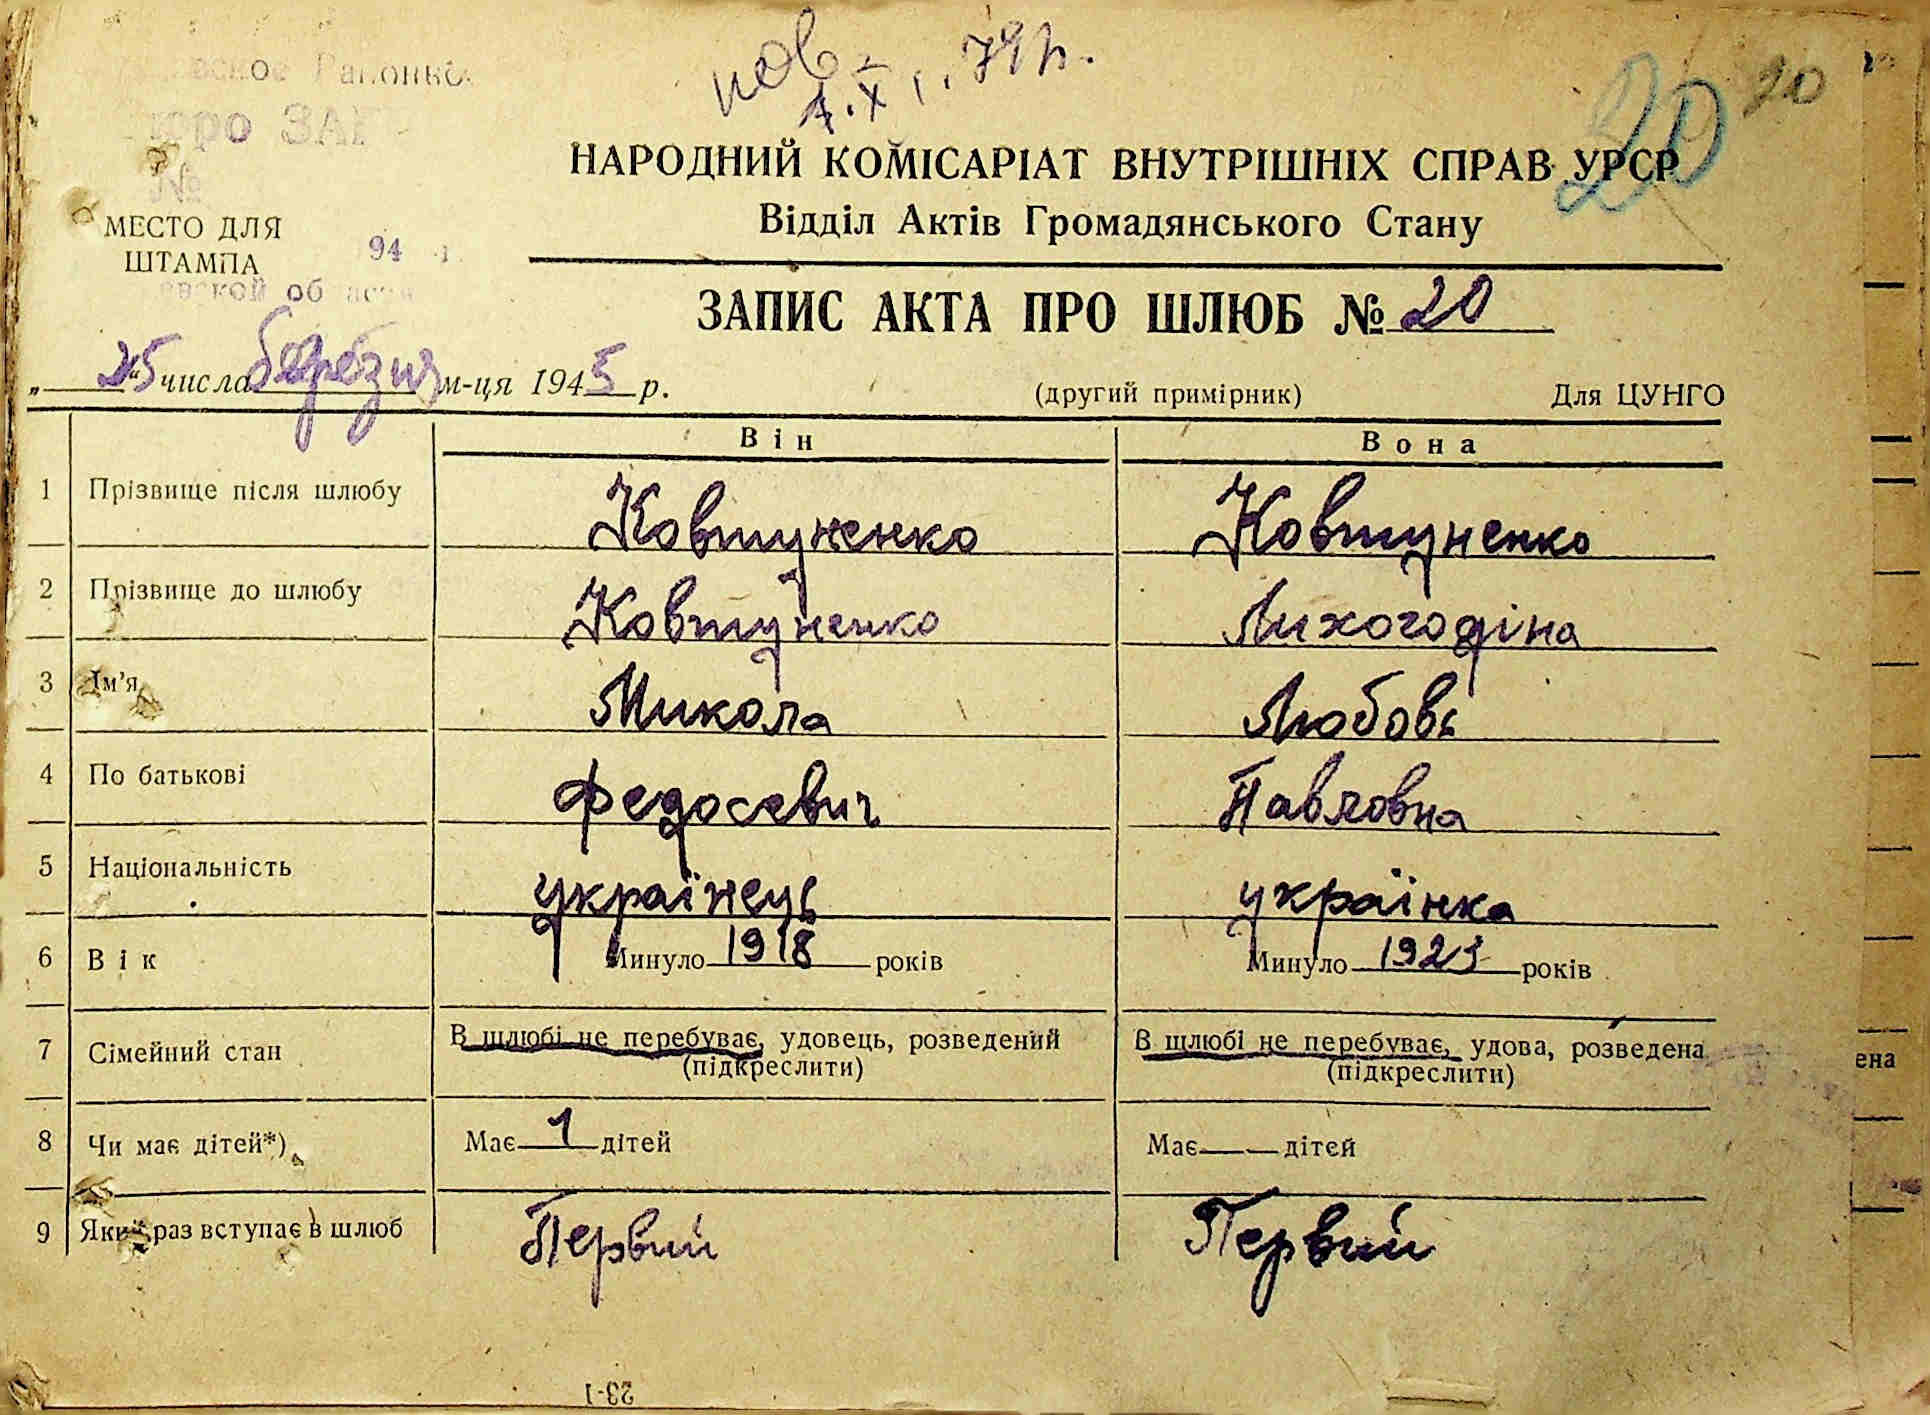 пов. 1.XI.79р.
20 20
НАРОДНИЙ КОМІСАРІАТ ВНУТРІШНІХ СПРАВ УРСР
Відділ Актів Громадянського Стану
бюро ЗАГС
№
МЕСТО ДЛЯ
ШТАМПА
94
ЗАПИС АКТА ПРО ШЛЮБ № 20
„ 25 “ числа березня м-ця 1945 р.
(другий примірник) Для ЦУНГО
Він Вона
1 Прізвище після шлюбу Ковтуненко Ковтуненко
2 Прізвище до шлюбу Ковтуненко Лихогодіна
3 Ім'я Микола Любовь
4 По батькові Федосевич Павловна
5 Національність українець українка
6 Вік Минуло 1918 років Минуло 1923 років
7 Сімейний стан В шлюбі не перебуває, удовець, розведений В шлюбі не перебуває, удова, розведена
(підкреслити) (підкреслити)
8 Чи має дітей*) Має 1 дітей Має — дітей
9 Який раз вступає в шлюб Первий Первий
23-1
ена